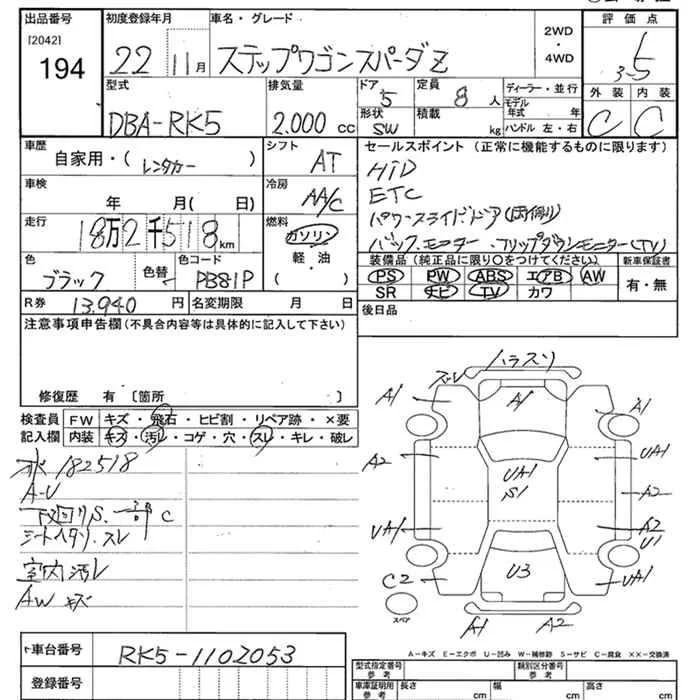 出品番号 初度登録年月 車名・グレード 2WD・4WD 評価点
[2042]
194 22 11月 ステップワゴンスパーダZ 3.5
型式 排気量 ドア 定員 ディーラー・並行 外装 内装
DBA-RK5 2.000 cc 5 8人 モデル年式 年 C C
形状 積載 ハンドル 左・右
SW kg
車歴 シフト セールスポイント (正常に機能するものに限ります)
自家用・( レンタカー ) AT HID
車検 冷房 ETC
年 月( 日) AA/C パワースライドドア(両側)
走行 燃料 バックモニター フリップダウンモニター(TV)
18万2千518km ガソリン
軽・油
( )
色 色替 色コード 装備品 (純正品に限り○をつけてください。) 新車保証書
ブラック PB81P PS PW ABS エアB AW 有・無
SR ナビ TV カワ
R券 13.940円 名変期限 月 日 後日品
注意事項申告欄 (不具合内容等は具体的に記入して下さい)
修復歴 有 〔箇所 〕
検査員 FW キズ・飛石・ヒビ割・リペア跡・×要
記入欄 内装 キズ・汚レ・コゲ・穴・スレ・キレ・破レ
182518
A-U
下回りS.一部C
シートヘタリ.スレ
室内汚レ
AW キズ
ズレ
A1 A1 A1
A2 UA1 UA1
S1 A2
UA1 A2
U1
C2 U3 UA1
スペア A1 A2
A-キズ E-エクボ U-凹み W-補修跡 S-サビ C-腐食 ××-交換済
車台番号 RK5-1102053
型式指定番号 参考 類別区分番号 参考
登録番号 車庫証明用 参考 長さ cm 幅 cm 高さ cm